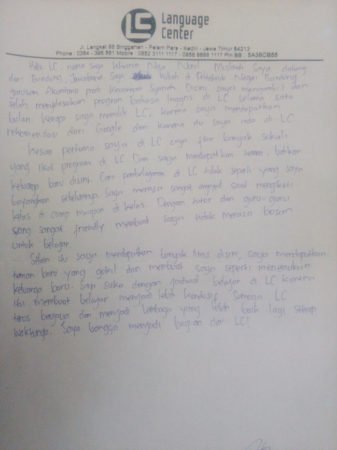 LC
Language
Center
Jl. Langkat 88 Singgahan - Pelem Pare - Kediri - Jawa Timur 64213
Phone : 0354 - 395 561 Mobile : 0852 3111 1117 - 0856 BB :
Halo LC, nama saya Wanda Nilga Nurul saya datang
dari Bandung, Jawa Barat. Saya kuliah di Negeri Bandung
jurusan Akuntansi prodi Keuangan Syariah. Disini, saya mengambil dan
telah menyelesaikan program bahasa Inggris di LC selama satu
bulan. Kenapa saya memilih LC, karena saya mendapatkan
rekomendasi dari Google dan karena itu saya ada di LC.
Kesan pertama saya di LC banyak sekali
yang ikut program di LC. Dan saya mendapatkan teman, bahkan
keluarga baru disini. Cara pembelajaran di LC tidak seperti yang saya
bayangkan sebelumnya. Saya merasa sangat saat mengikuti
kelas di camp maupun di kelas. Dengan tutor dan guru-guru
yang sangat friendly membuat saya tidak merasa bosan
untuk belajar.
Selain itu saya mendapatkan banyak disini, saya mendapatkan
teman baru yang dan membuat saya seperti menemukan
keluarga baru. Saya suka dengan jadwal belajar di LC karena
itu membuat belajar menjadi lebih kondusif. Semoga LC
terus berjaya dan menjadi lembaga yang lebih baik lagi setiap
waktunya. Saya bangga menjadi bagian dari LC!